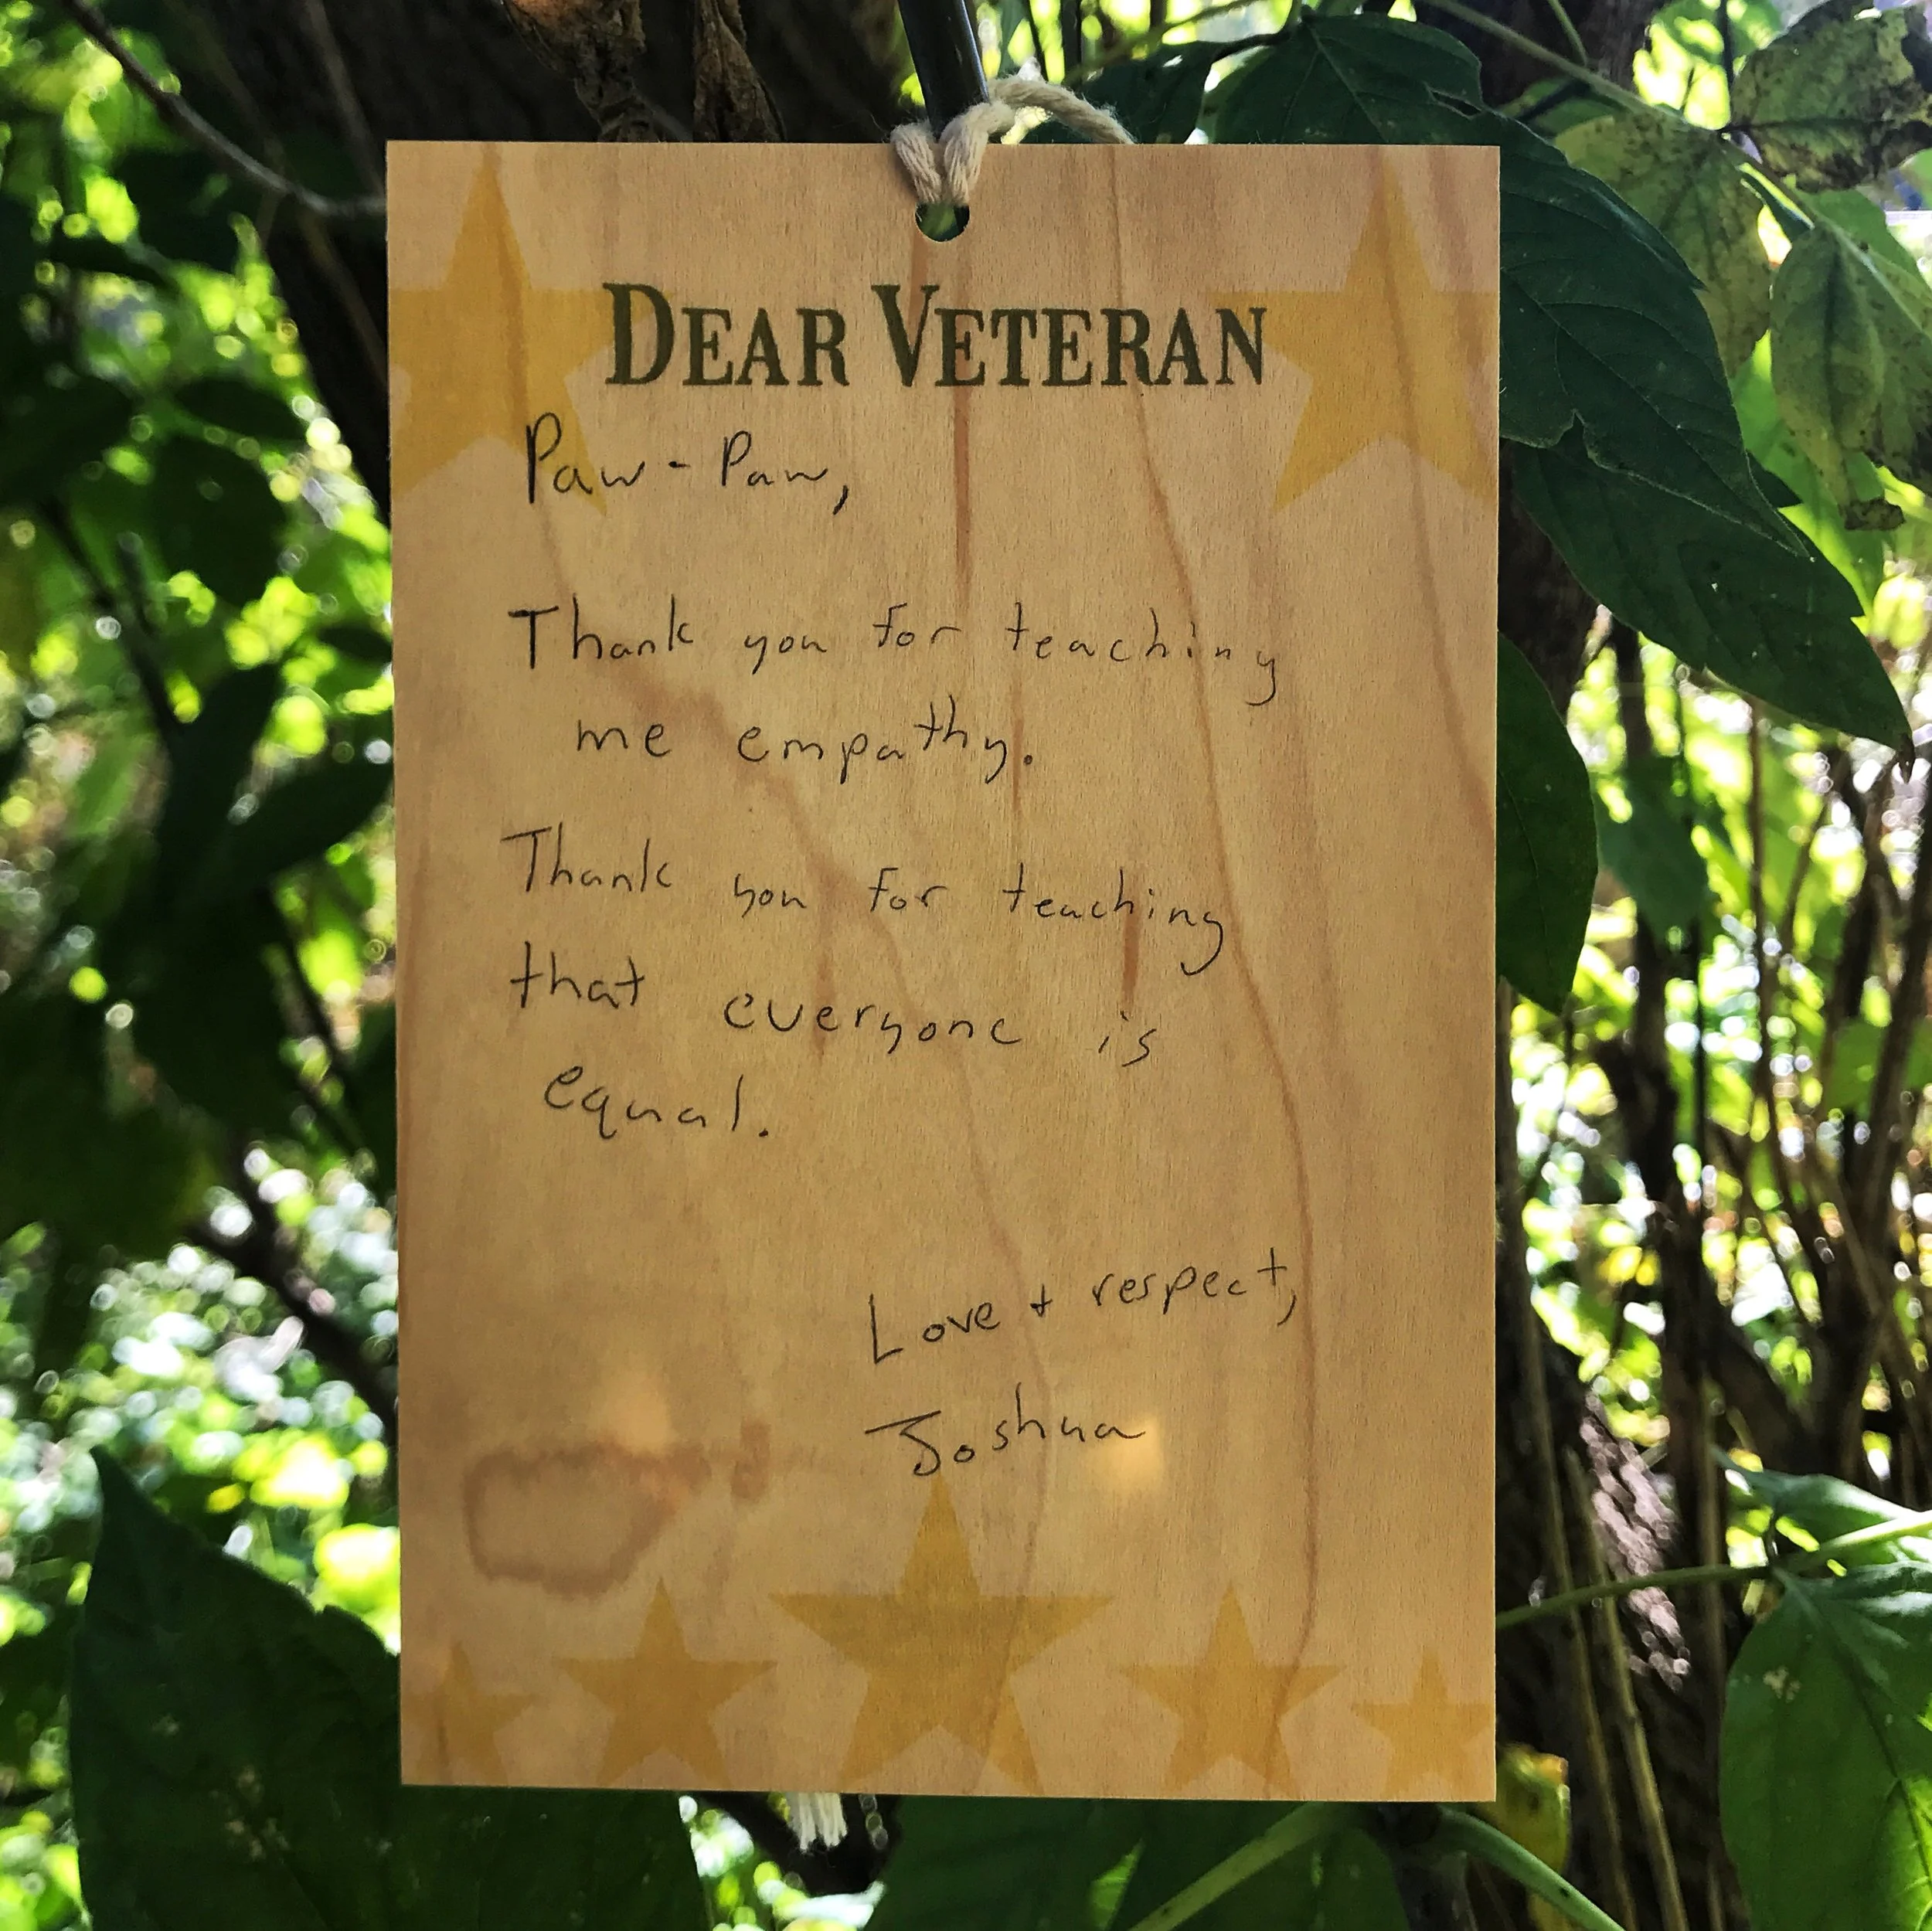 DEAR VETERAN
Paw-Paw,
Thank you for teaching
me empathy.
Thank you for teaching
that everyone is
equal.
Love + respect,
Joshua